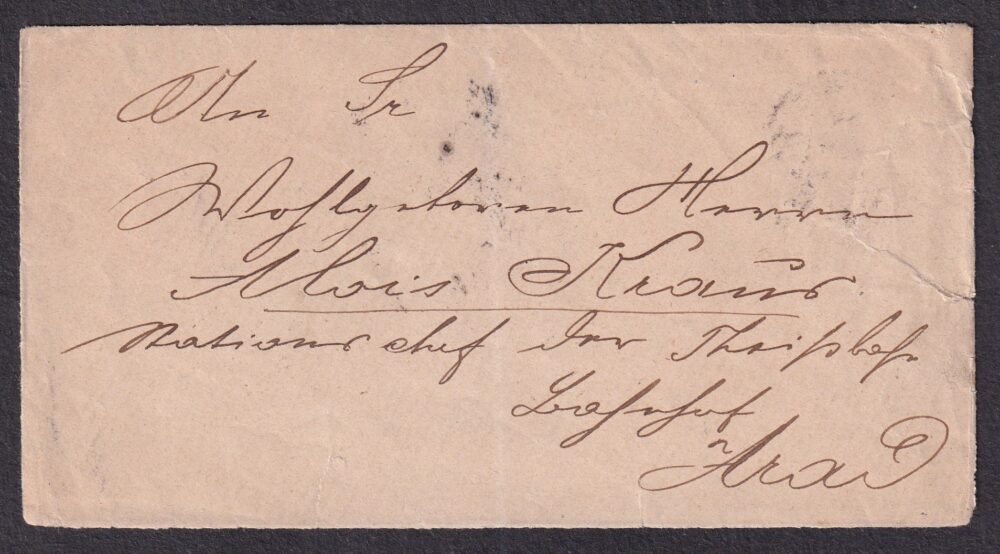 An Sr
Wohlgeboren Herrn
Alois Kraus
Stationschef der Theißbahn
Bahnhof
Arad